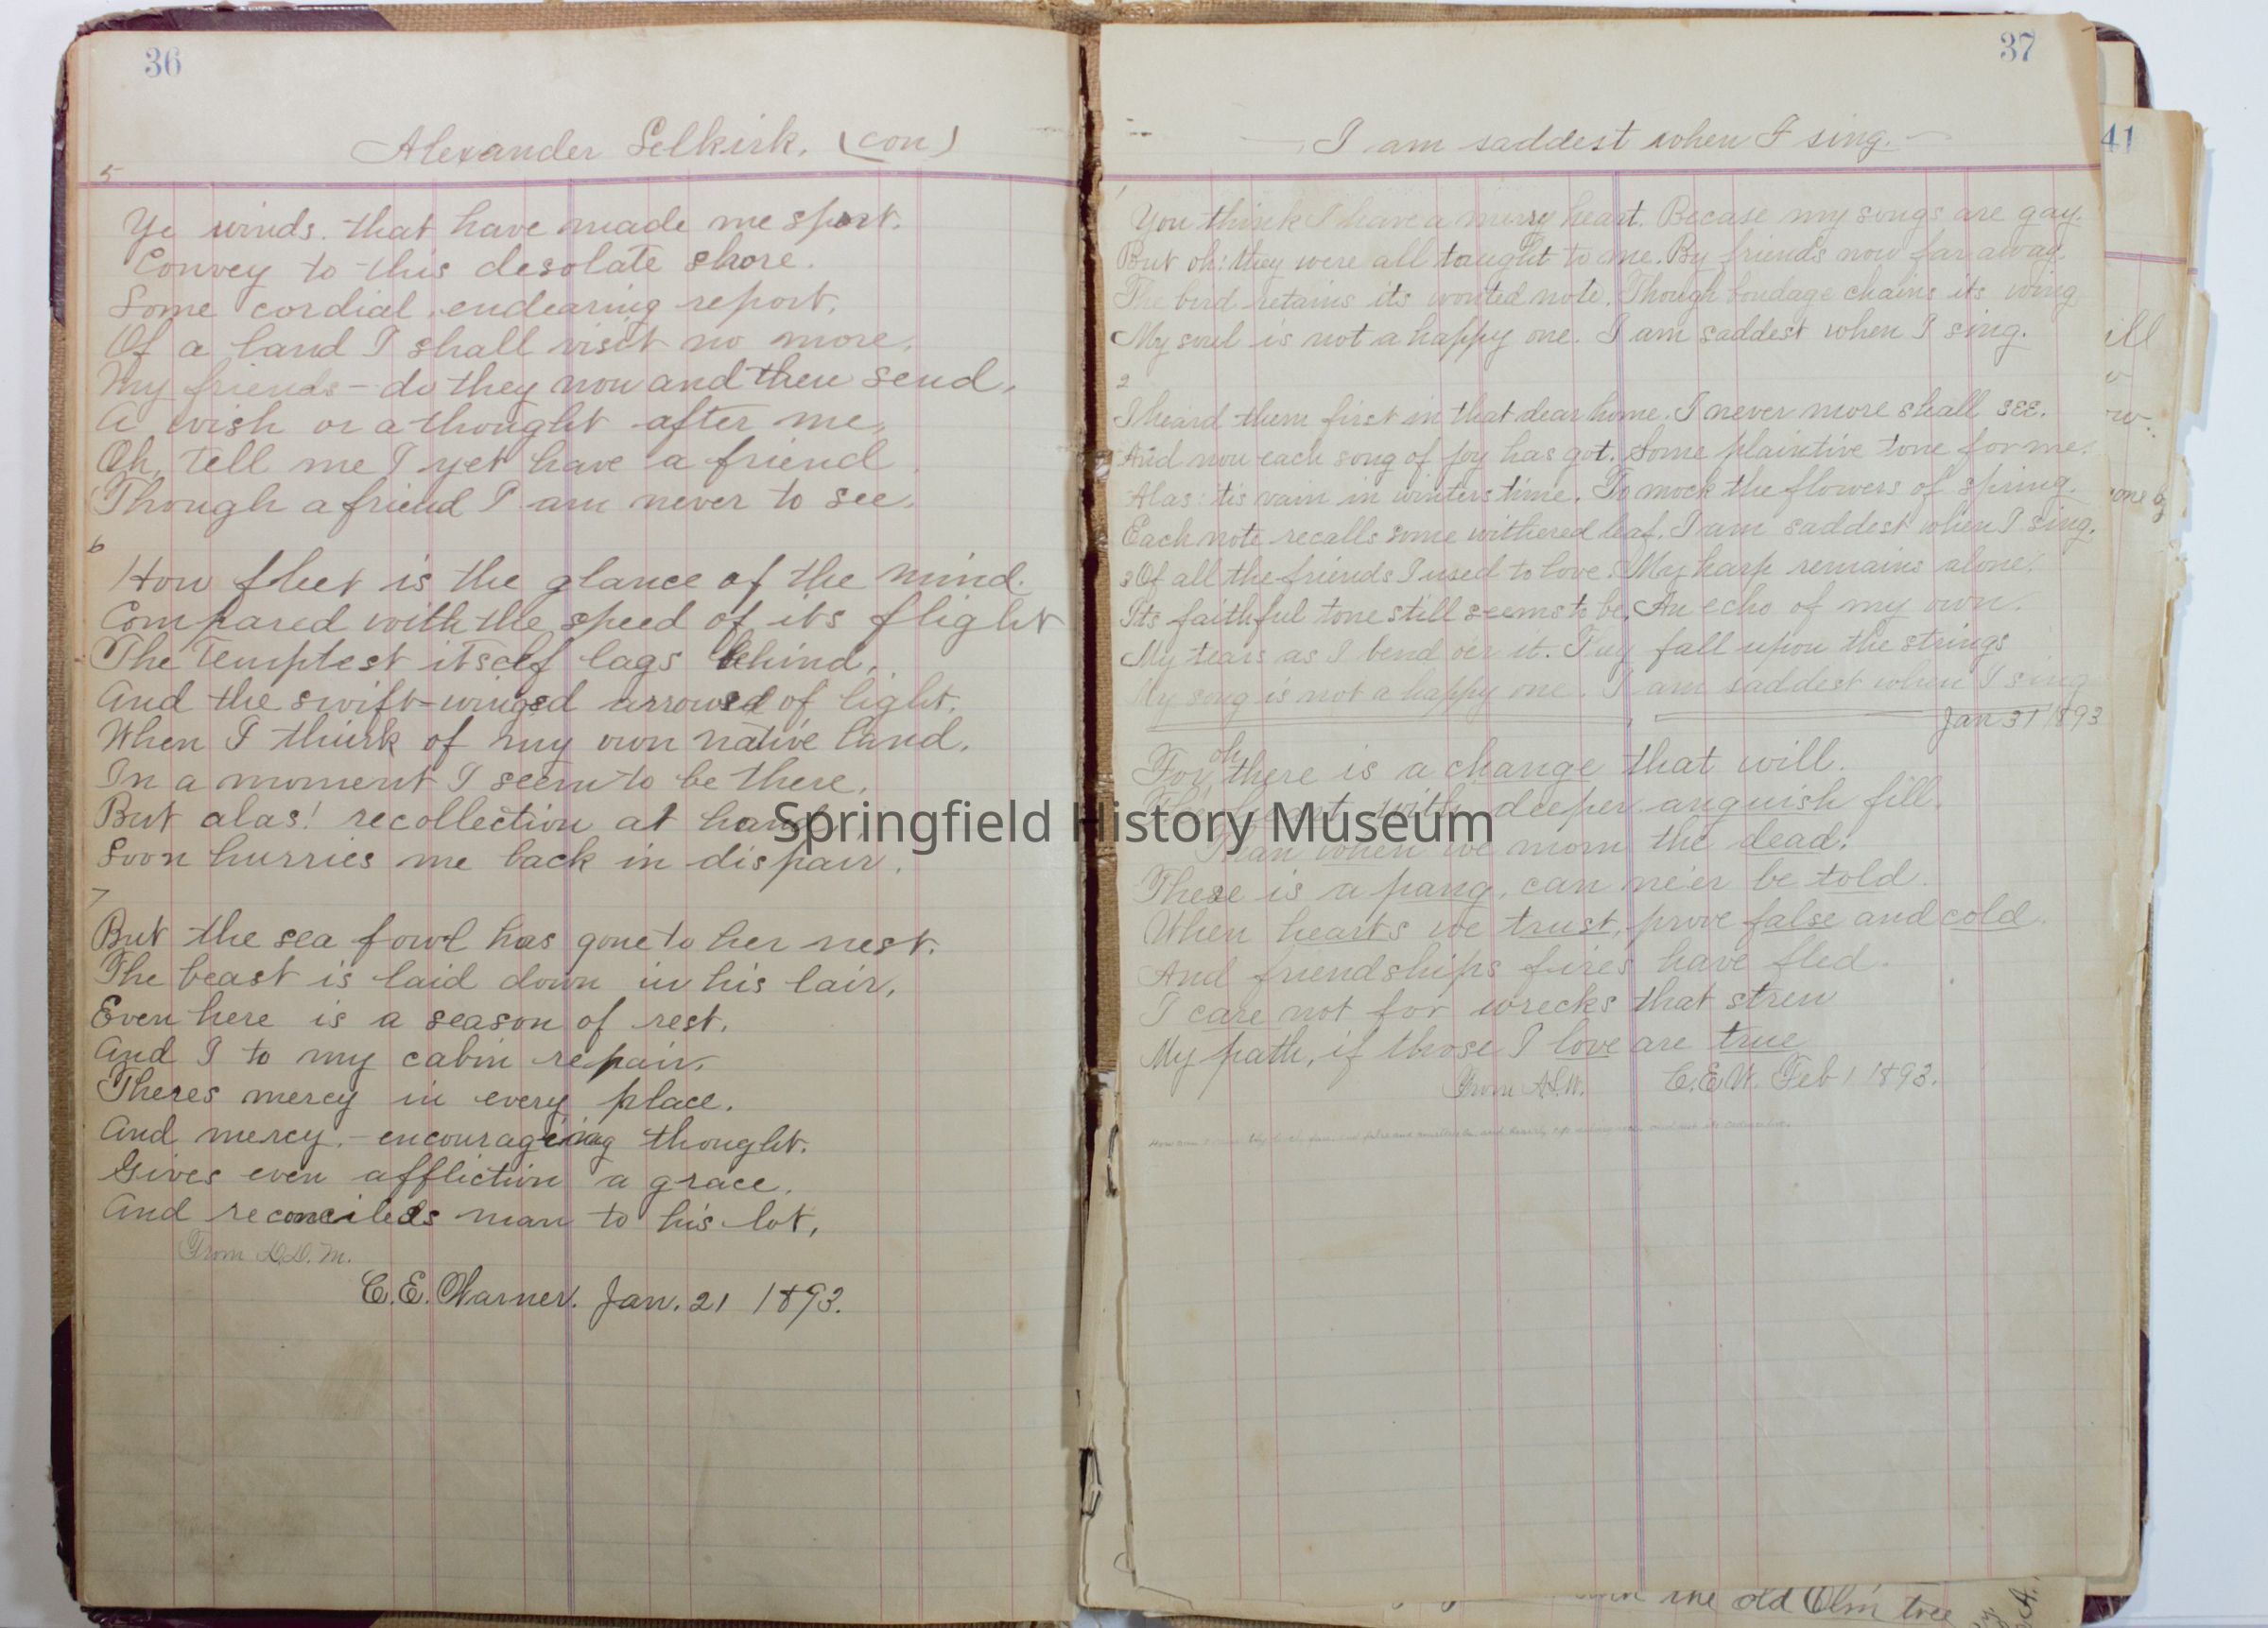 36
Alexander Selkirk. (con)
5
Ye winds. that have made me sport.
Convey to this desolate shore.
Some cordial endearing report.
Of a land I shall visit no more.
My friends - do they now and then send.
A wish or a thought after me.
Oh, tell me I yet have a friend.
Though a friend I am never to see.
6
How fleet is the glance of the mind.
Compared with the speed of its flight
The Temptest itself lags behind.
And the swift-winged arrowsd of light.
When I think of my own native land.
In a moment I seem to be there.
But alas! recollection at hand
Soon hurries me back in dispair.
7
But the sea fowl has gone to her nest.
The beast is laid down in his lair.
Even here is a season of rest.
And I to my cabin repair.
Theres mercy in every place.
And mercy. - encourageing thought.
Gives even affliction a grace.
And reconciles man to his lot.
From D.D. M.
C.E. Warner. Jan. 21 1893.
37
I am saddest when I sing.
1
You think I have a merry heart. Becase my songs are gay.
But oh: they were all taught to me. By friends now far away.
The bird retains its wonted note. Though bondage chains its wing
My soul is not a happy one. I am saddest when I sing.
2
I heard them first in that dear home. I never more shall see.
And now each song of joy has got. Some plaintive tone for me.
Alas: tis vain in winters time. To mock the flowers of spring.
Each note recalls some withered leaf. I am saddest when I sing.
3 Of all the friends I used to love. My harp remains alone.
Its faithful tone still seems to be. An echo of my own.
My tears as I bend oer it. fall upon the strings
My song is not a happy one. I am saddest when I sing
Jan 31 1893
For oh there is a change that will.
The heart with deeper anguish fill.
Than when we morn the dead.
There is a pang, can ne'er be told.
When hearts we trust, prove false and cold.
And friendships fires have fled.
I care not for wrecks that strew
My path, if those I love are true
From A.L.W. C.E.W. Feb 1 1893.
41
ill
ons by
the old Elm tree
Springfield History Museum